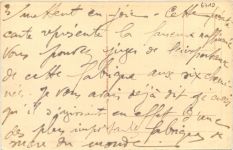 s'mettent en joie. Cette
carte représente la fameuse raffinerie
Vous pouvez juger de l'importance
de cette fabrique aux six chemi
nées. Je vous avais déjà dit je crois
qu'il s'agissait en effet d'une
des plus importantes fabriques de
sucre du monde.